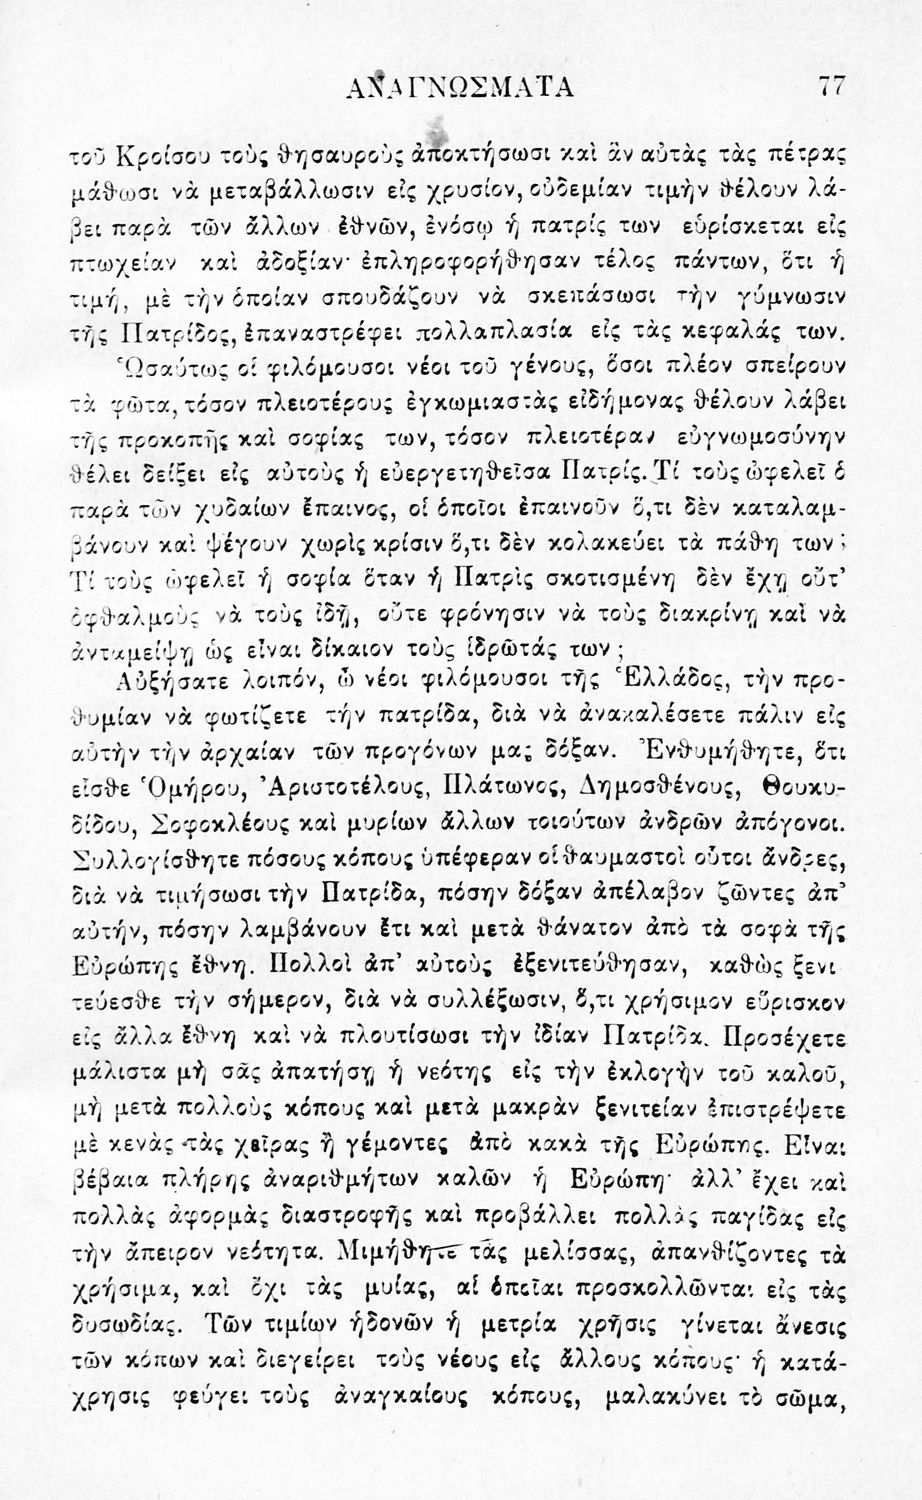 ΑΝΑΓΝΩΣΜΑΤΑ 77
τοῦ Κροίσου τοὺς θησαυροὺς ἀποκτήσωσι καὶ ἂν αὐτὰς τὰς πέτρας
μάθωσι νὰ μεταβάλλωσιν εἰς χρυσίον, οὐδεμίαν τιμὴν θέλουν λά-
βει παρὰ τῶν ἄλλων ἐθνῶν, ἐνόσῳ ἡ πατρίς των εὑρίσκεται εἰς
πτωχείαν καὶ ἀδοξίαν· ἐπληροφορήθησαν τέλος πάντων, ὅτι ἡ
τιμή, μὲ τὴν ὁποίαν σπουδάζουν νὰ σκεπάσωσι τὴν γύμνωσιν
τῆς Πατρίδος, ἐπαναστρέφει πολλαπλασία εἰς τὰς κεφαλάς των.
Ὡσαύτως οἱ φιλόμουσοι νέοι τοῦ γένους, ὅσοι πλέον σπείρουν
τὰ φῶτα, τόσον πλειοτέρους ἐγκωμιαστὰς εἰδήμονας θέλουν λάβει
τῆς προκοπῆς καὶ σοφίας των, τόσον πλειοτέραν εὐγνωμοσύνην
θέλει δείξει εἰς αὐτοὺς ἡ εὐεργετηθεῖσα Πατρίς. Τί τοὺς ὠφελεῖ ὁ
παρὰ τῶν χυδαίων ἔπαινος, οἱ ὁποῖοι ἐπαινοῦν ὅ,τι δὲν καταλαμ-
βάνουν καὶ ψέγουν χωρὶς κρίσιν ὅ,τι δὲν κολακεύει τὰ πάθη των;
Τί τοὺς ὠφελεῖ ἡ σοφία ὅταν ἡ Πατρὶς σκοτισμένη δὲν ἔχῃ οὔτ’
ὀφθαλμοὺς νὰ τοὺς ἰδῇ, οὔτε φρόνησιν νὰ τοὺς διακρίνῃ καὶ νὰ
ἀνταμείψῃ ὡς εἶναι δίκαιον τοὺς ἱδρῶτάς των;
Αὐξήσατε λοιπόν, ὦ νέοι φιλόμουσοι τῆς Ἑλλάδος, τὴν προ-
θυμίαν νὰ φωτίζετε τήν πατρίδα, διὰ νὰ ἀνακαλέσετε πάλιν εἰς
αὐτὴν τὴν ἀρχαίαν τῶν προγόνων μας δόξαν. Ἐνθυμήθητε, ὅτι
εἶσθε Ὁμήρου, Ἀριστοτέλους, Πλάτωνος, Δημοσθένους, Θουκυ-
δίδου, Σοφοκλέους καὶ μυρίων ἄλλων τοιούτων ἀνδρῶν ἀπόγονοι.
Συλλογίσθητε πόσους κόπους ὑπέφεραν οἱ θαυμαστοὶ οὗτοι ἄνδρες,
διὰ νὰ τιμήσωσι τὴν Πατρίδα, πόσην δόξαν ἀπέλαβον ζῶντες ἀπ’
αὐτήν, πόσην λαμβάνουν ἔτι καὶ μετὰ θάνατον ἀπὸ τὰ σοφὰ τῆς
Εὐρώπης ἔθνη. Πολλοὶ ἀπ’ αὐτοὺς ἐξενιτεύθησαν, καθὼς ξενι
τεύεσθε τὴν σήμερον, διὰ νὰ συλλέξωσιν, ὅ,τι χρήσιμον εὕρισκον
εἰς ἄλλα ἔθνη καὶ νὰ πλουτίσωσι τὴν ἰδίαν Πατρίδα. Προσέχετε
μάλιστα μὴ σᾶς ἀπατήσῃ ἡ νεότης εἰς τὴν ἐκλογὴν τοῦ καλοῦ,
μὴ μετὰ πολλοὺς κόπους καὶ μετὰ μακρὰν ξενιτείαν ἐπιστρέψετε
μὲ κενὰς τὰς χεῖρας ἢ γέμοντες ἀπὸ κακὰ τῆς Εὐρώπης. Εἶναι
βέβαια πλήρης ἀναριθμήτων καλῶν ἡ Εὐρώπη· ἀλλ’ ἔχει καὶ
πολλὰς ἀφορμὰς διαστροφῆς καὶ προβάλλει πολλὰς παγίδας εἰς
τὴν ἄπειρον νεότητα. Μιμήθητε τὰς μελίσσας, ἀπανθίζοντες τὰ
χρήσιμα, καὶ ὄχι τὰς μυίας, αἱ ὁποῖαι προσκολλῶνται εἰς τὰς
δυσωδίας. Τῶν τιμίων ἡδονῶν ἡ μετρία χρῆσις γίνεται ἄνεσις
τῶν κόπων καὶ διεγείρει τοὺς νέους εἰς ἄλλους κόπους· ἡ κατά-
χρησις φεύγει τοὺς ἀναγκαίους κόπους, μαλακύνει τὸ σῶμα,